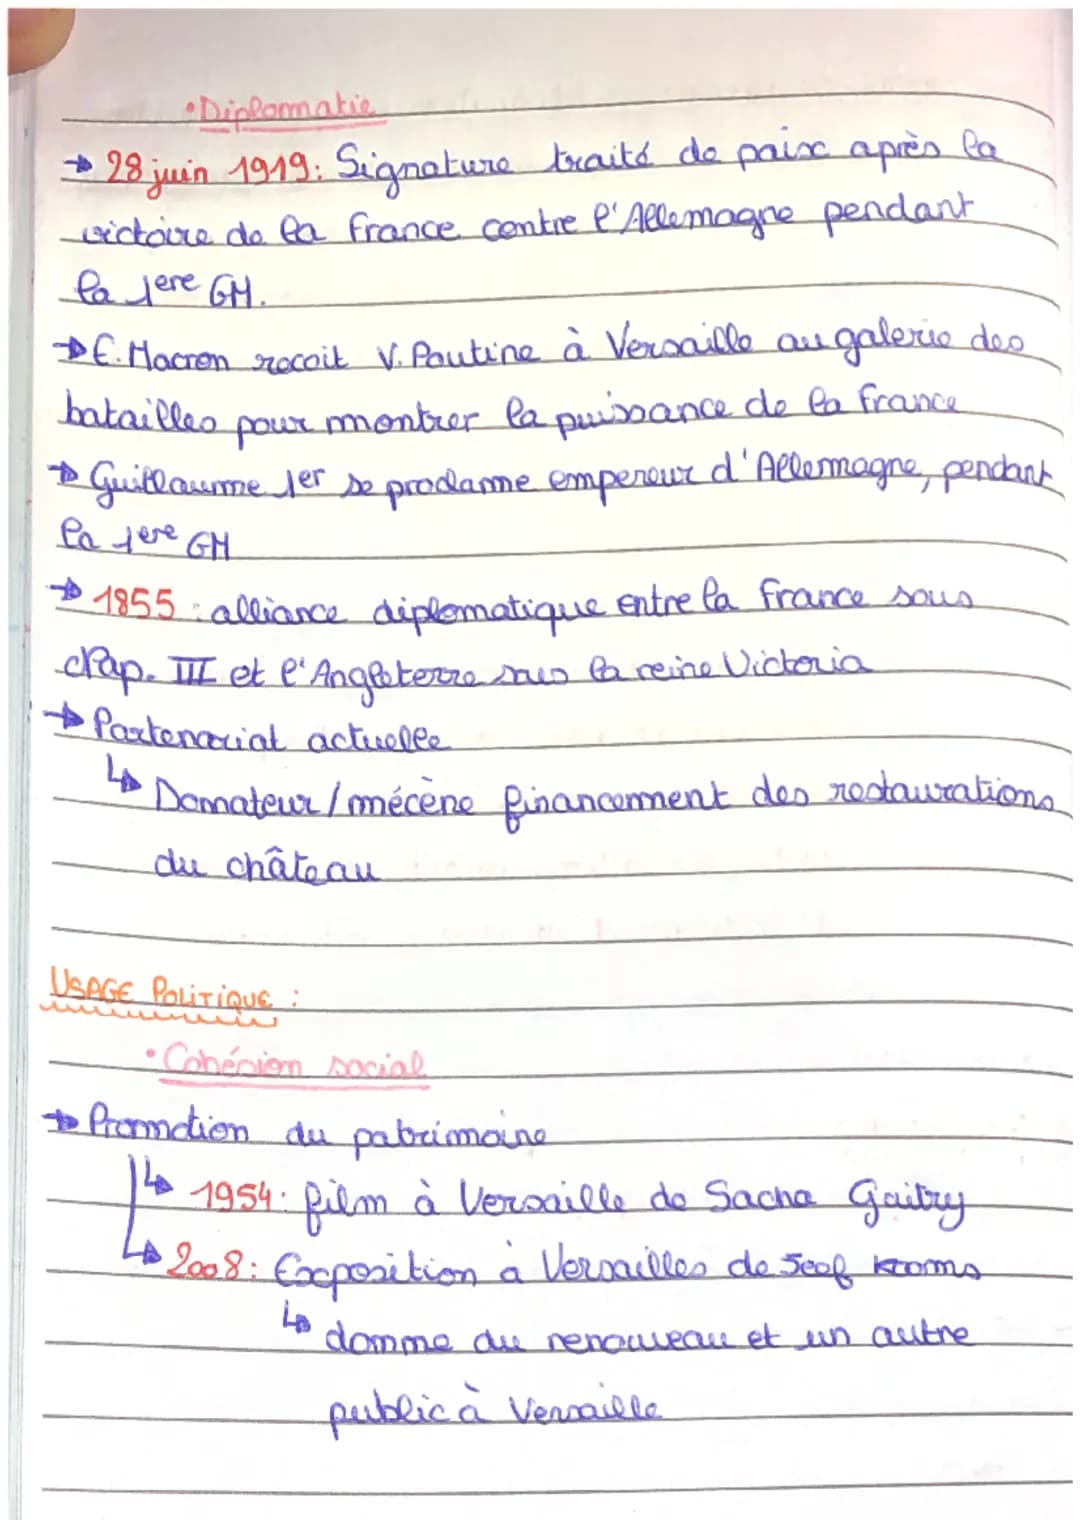 • Diplomatie
→ 28 juin 1919: Signature traité de paix après la
victoire de la France contre l'Allemagne pendant
la 1ere GM.
→ E. Macron recoit V. Poutine à Versaille au galerie des
batailles pour montrer la puissance de la France
→ Guillaume 1er se proclame empereur d'Allemagne, pendant
la 1ere GM
→ 1855 : alliance diplomatique entre la France sous
Nap. III et l'Angleterre sous la reine Victoria
→ Partenariat actuelle
↳ Donnateur / mécène financement des restaurations
du château
USAGE POLITIQUE :
• Cohésion social
→ Promotion du patrimoine
↳ 1954: film à Versaille de Sacha Gaitry
↳ 2008: Exposition à Versailles de Jeef Kooms
↳ domme du renouveau et un autre
public à Versaille